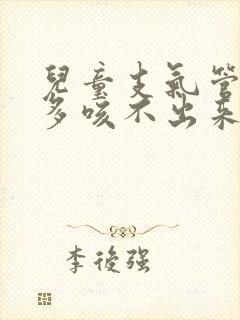 兒童支氣管
多咳不出來
李後强